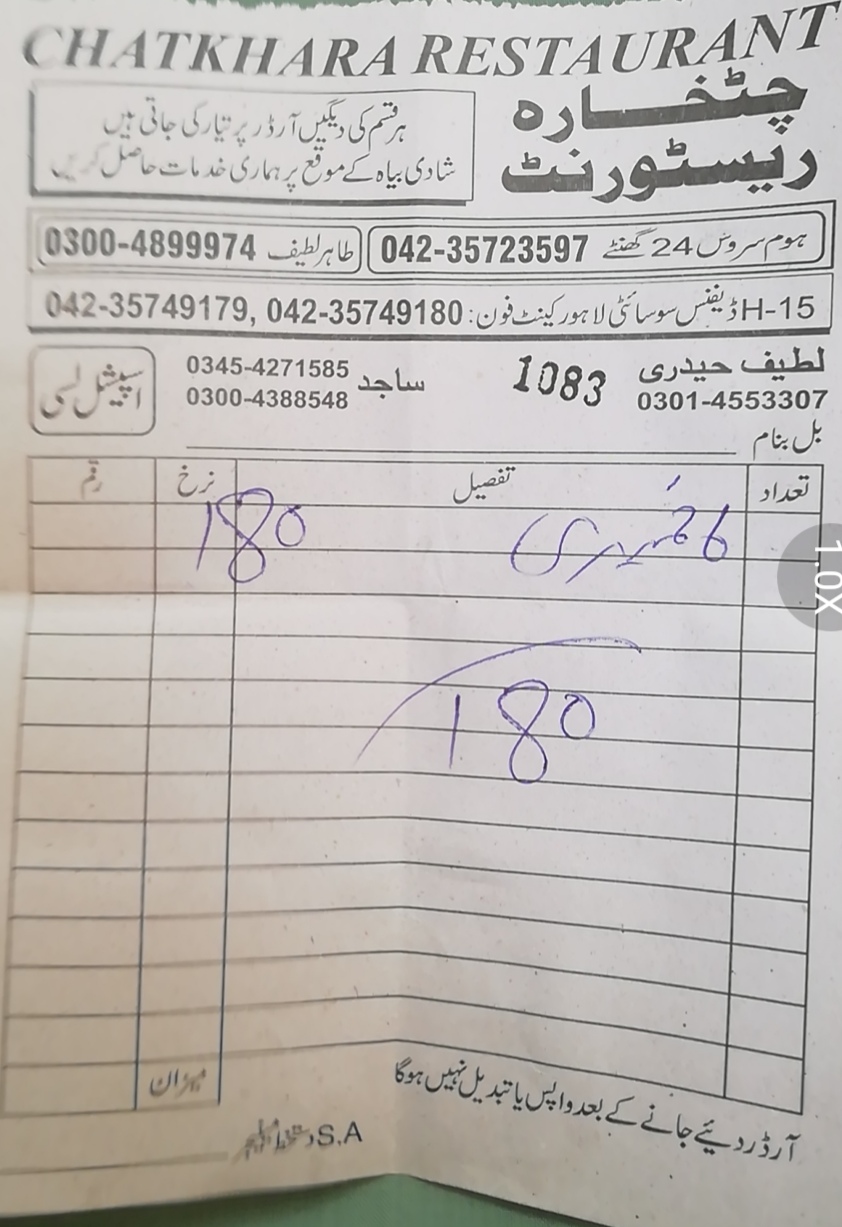 CHATKHARA RESTAURANT
چٹخارہ
ریسٹورنٹ
ہر قسم کی دیگیں آرڈر پر تیار کی جاتی ہیں
شادی بیاہ کے موقع پر ہماری خدمات حاصل کریں
ہوم سروس 24 گھنٹے 042-35723597
طاہر لطیف 0300-4899974
H-15 ڈیفنس سوسائٹی لاہور کینٹ فون: 042-35749180, 042-35749179
لطیف حیدری
0301-4553307
1083
ساجد
0345-4271585
0300-4388548
اسپیشل لسی
بل بنام
تعداد تفصیل نرخ رقم
180
180
میزان
آرڈر دیئے جانے کے بعد واپس یا تبدیل نہیں ہوگا
S.A
1.0X